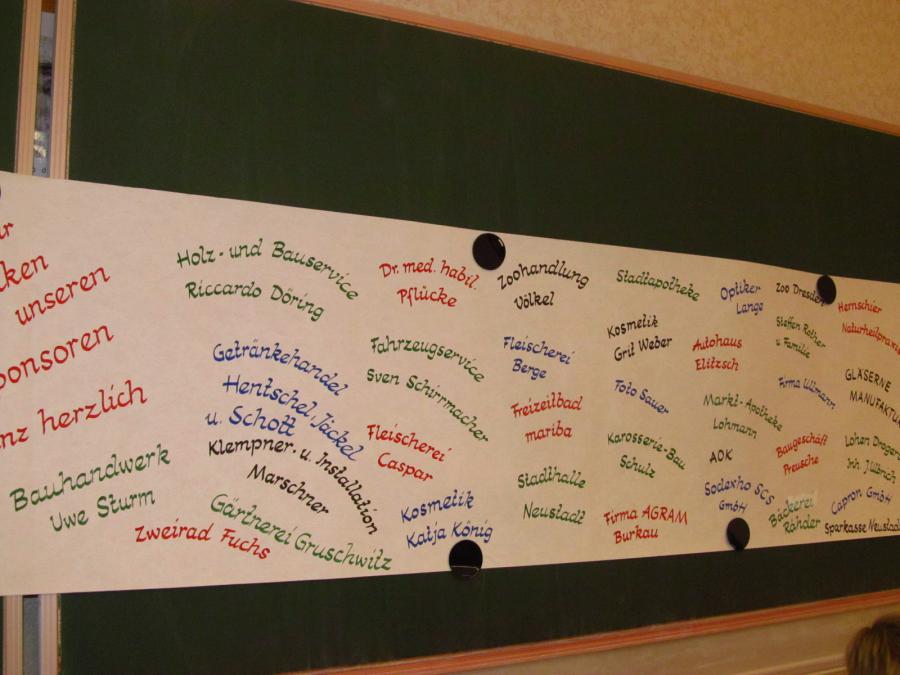 unseren
herzlich
Bauhandwerk
Uwe Sturm
Zweirad Fuchs
Holz- und Bauservice
Riccardo Döring
Getränkehandel
Hentschel, Jäckel
u. Schott
Klempner- u. Installation
Marschner
Gärtnerei Gruschwitz
Dr. med. habil.
Pflücke
Fahrzeugservice
Sven Schirrmacher
Fleischerei
Caspar
Kosmetik
Katja König
Zoohandlung
Völkel
Fleischerei
Berge
Freizeitbad
mariba
Stadthalle
Neustadt
Stadtapotheke
Kosmetik
Grit Weber
Foto Sauer
Karosserie-Bau
Schulz
Firma AGRAM
Burkau
Optiker
Lange
Autohaus
Elitzsch
Markt-Apotheke
Lohmann
AOK
Sodexho SCS
GmbH
Zoo Dresden
Steffen
u Familie
Firma Ullmann
Baugeschäft
Preusche
Bäckerei
Rähder
Hernschier
GLÄSERNE
Inh.
Capron GmbH
Sparkasse